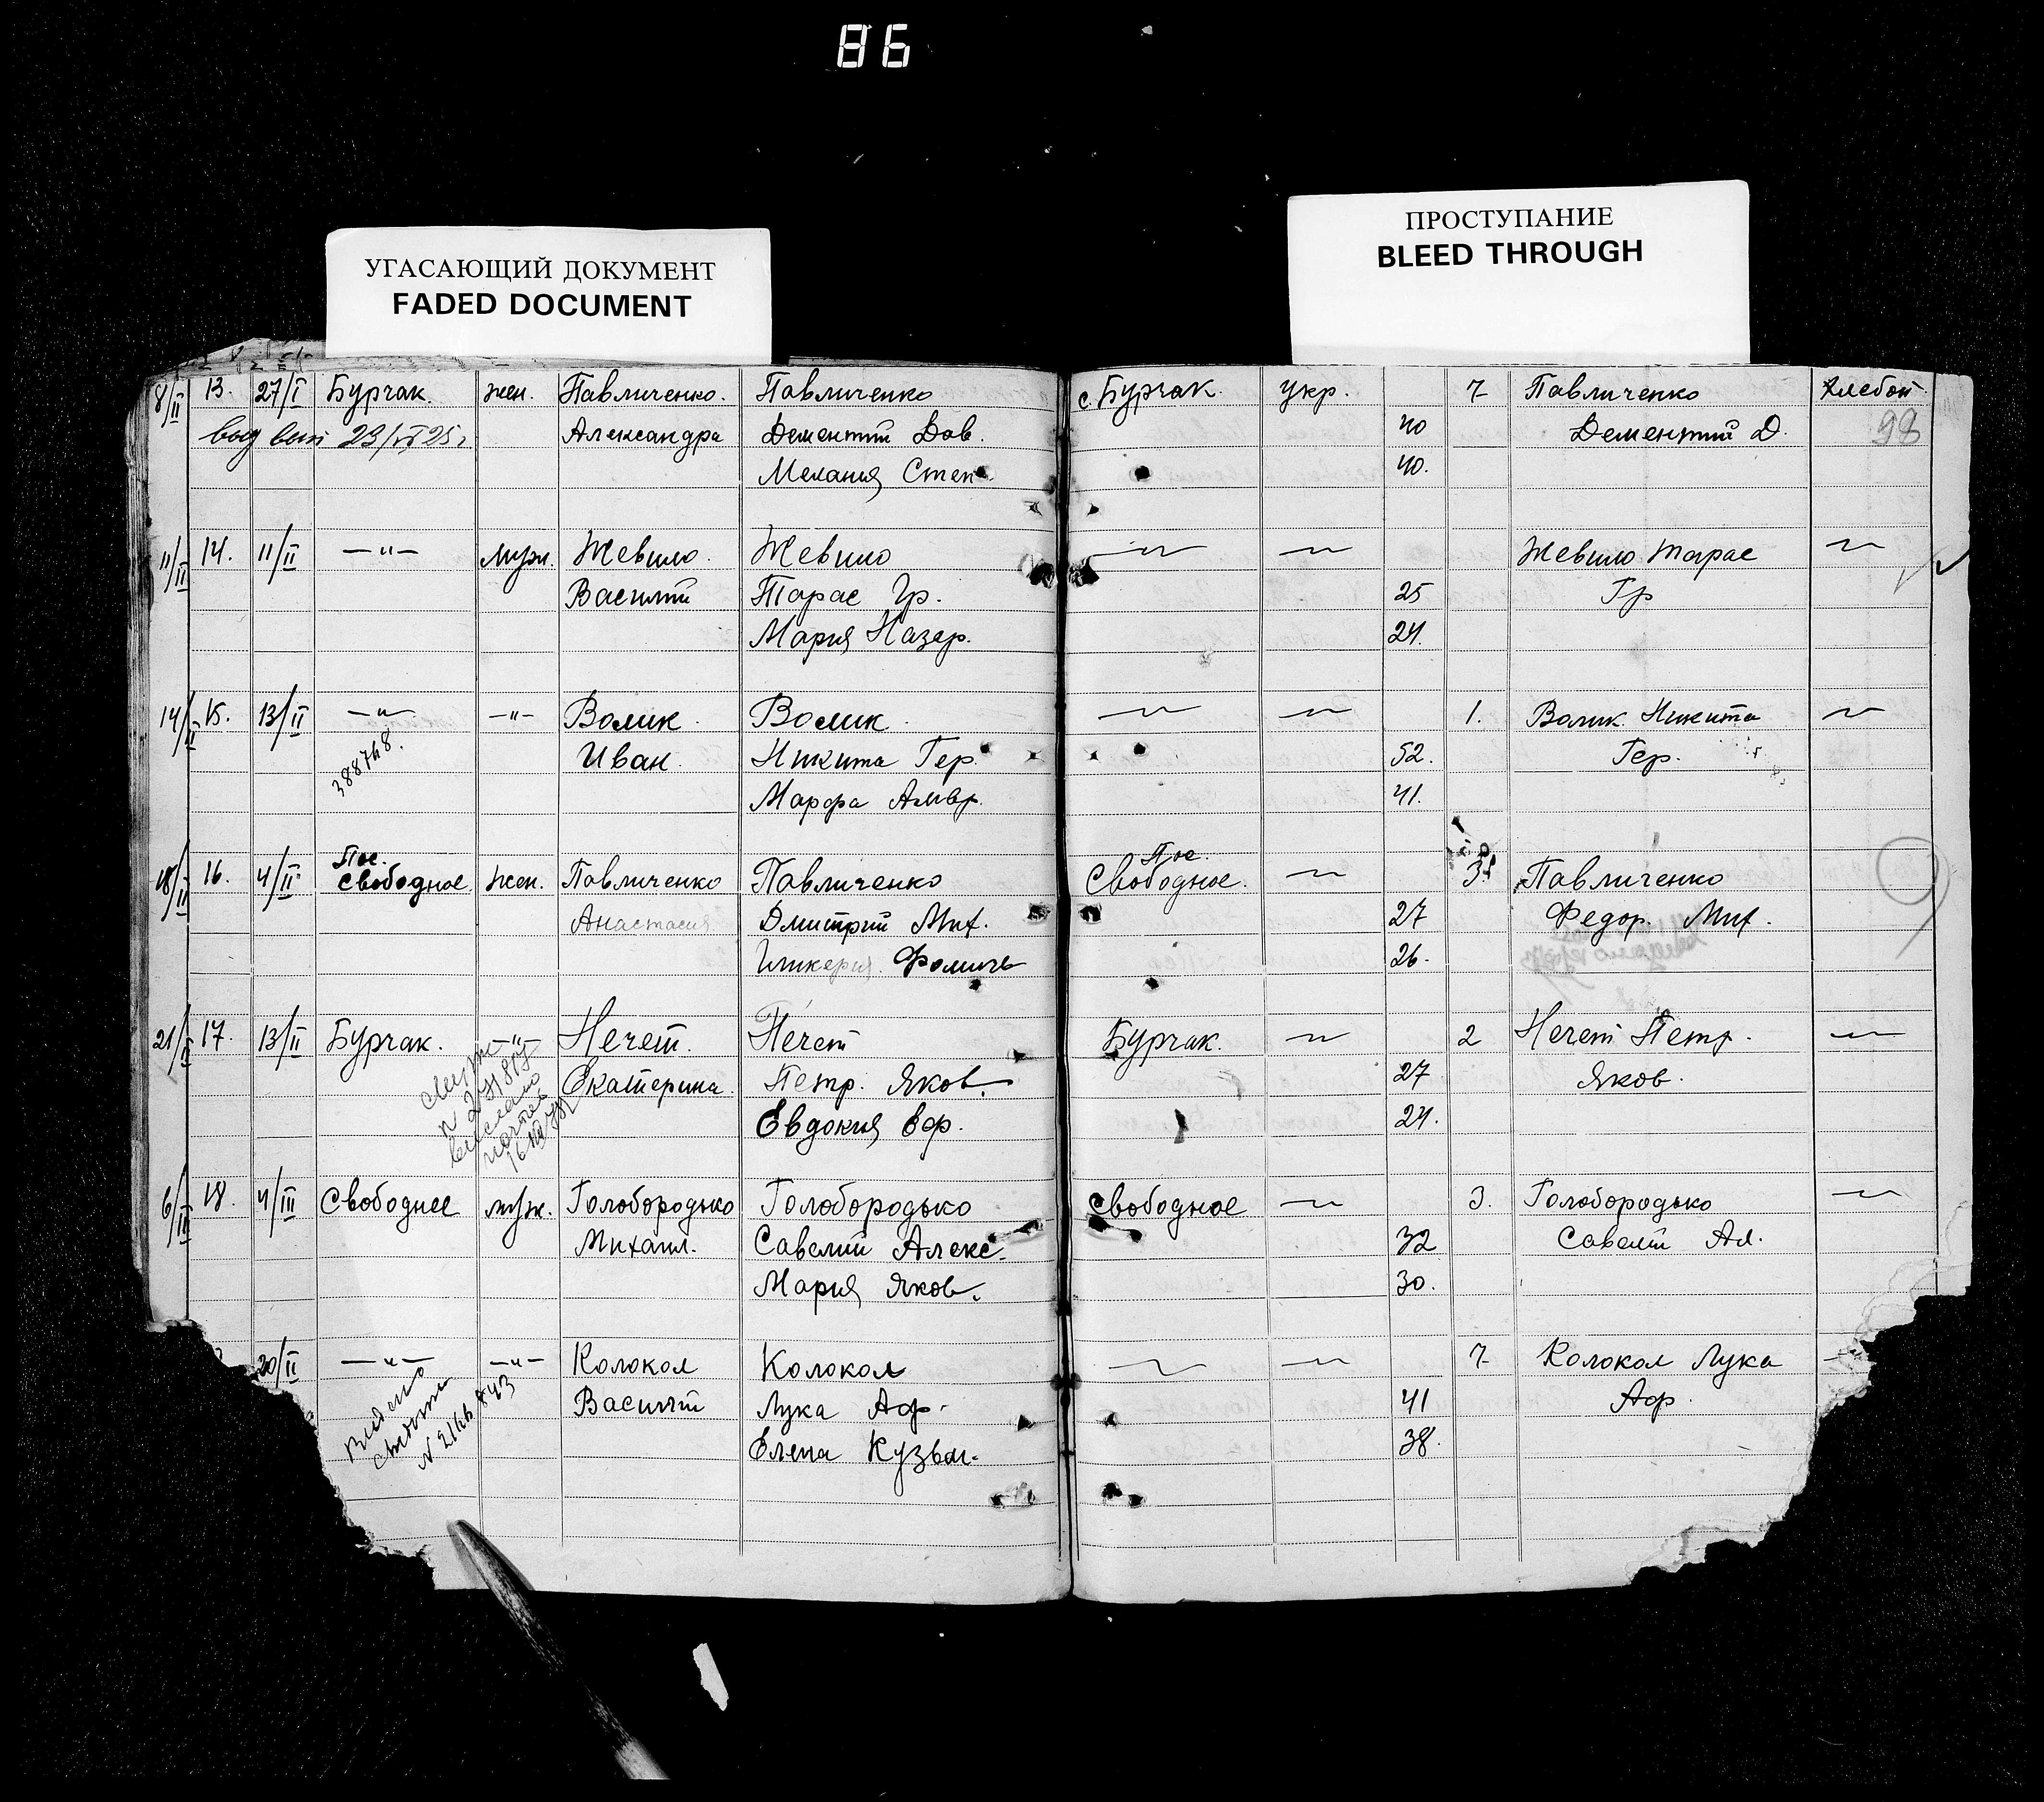 86
УГАСАЮЩИЙ ДОКУМЕНТ
FADED DOCUMENT
ПРОСТУПАНИЕ
BLEED THROUGH
8/II 13. 27/I Бурчак. жен. Павличенко. Павличенко с Бурчак. укр. 7 Павличенко хлебоп
23/ 25 Александра Дементий Дав. 40 Дементий Д. 98
Мелания Степ. 40.
11/II 14. 11/II —"— муж. Жевило. Жевило —"— —"— Жевило Тарас —"—
Василий Тарас Гр. 25 Гр
Мария Назар. 24.
14/II 15. 13/II —"— —"— Волик. Волик. —"— —"— 1. Волик Никита —"—
388748. Иван. Никита Гер. 52. Гер.
Марфа Амвр. 41.
Пос. Пос.
18/II 16. 4/II Свободное. жен. Павличенко Павличенко Свободное. —"— 3 Павличенко
Анастасия Дмитрий Мих. 27 Федор. Мих.
Гликерия Фомичв 26.
21/II 17. 13/II Бурчак. —"— Нечет. Нечет Бурчак. —"— 2 Нечет Петр. —"—
Екатерина. Петр. Яков. 27 Яков.
Евдокия Еф. 24.
6/III 18. 4/III Свободнее муж. Голобородько Голобородько Свободное —"— 3. Голобородько —"—
Михаил. Савелий Алекс. 32 Савелий Ал.
Мария Яков. 30.
20/II —"— —"— Колокол Колокол —"— —"— 7 Колокол Лука
Василий Лука Аф. 41 Аф.
Елена Кузьм. 38.